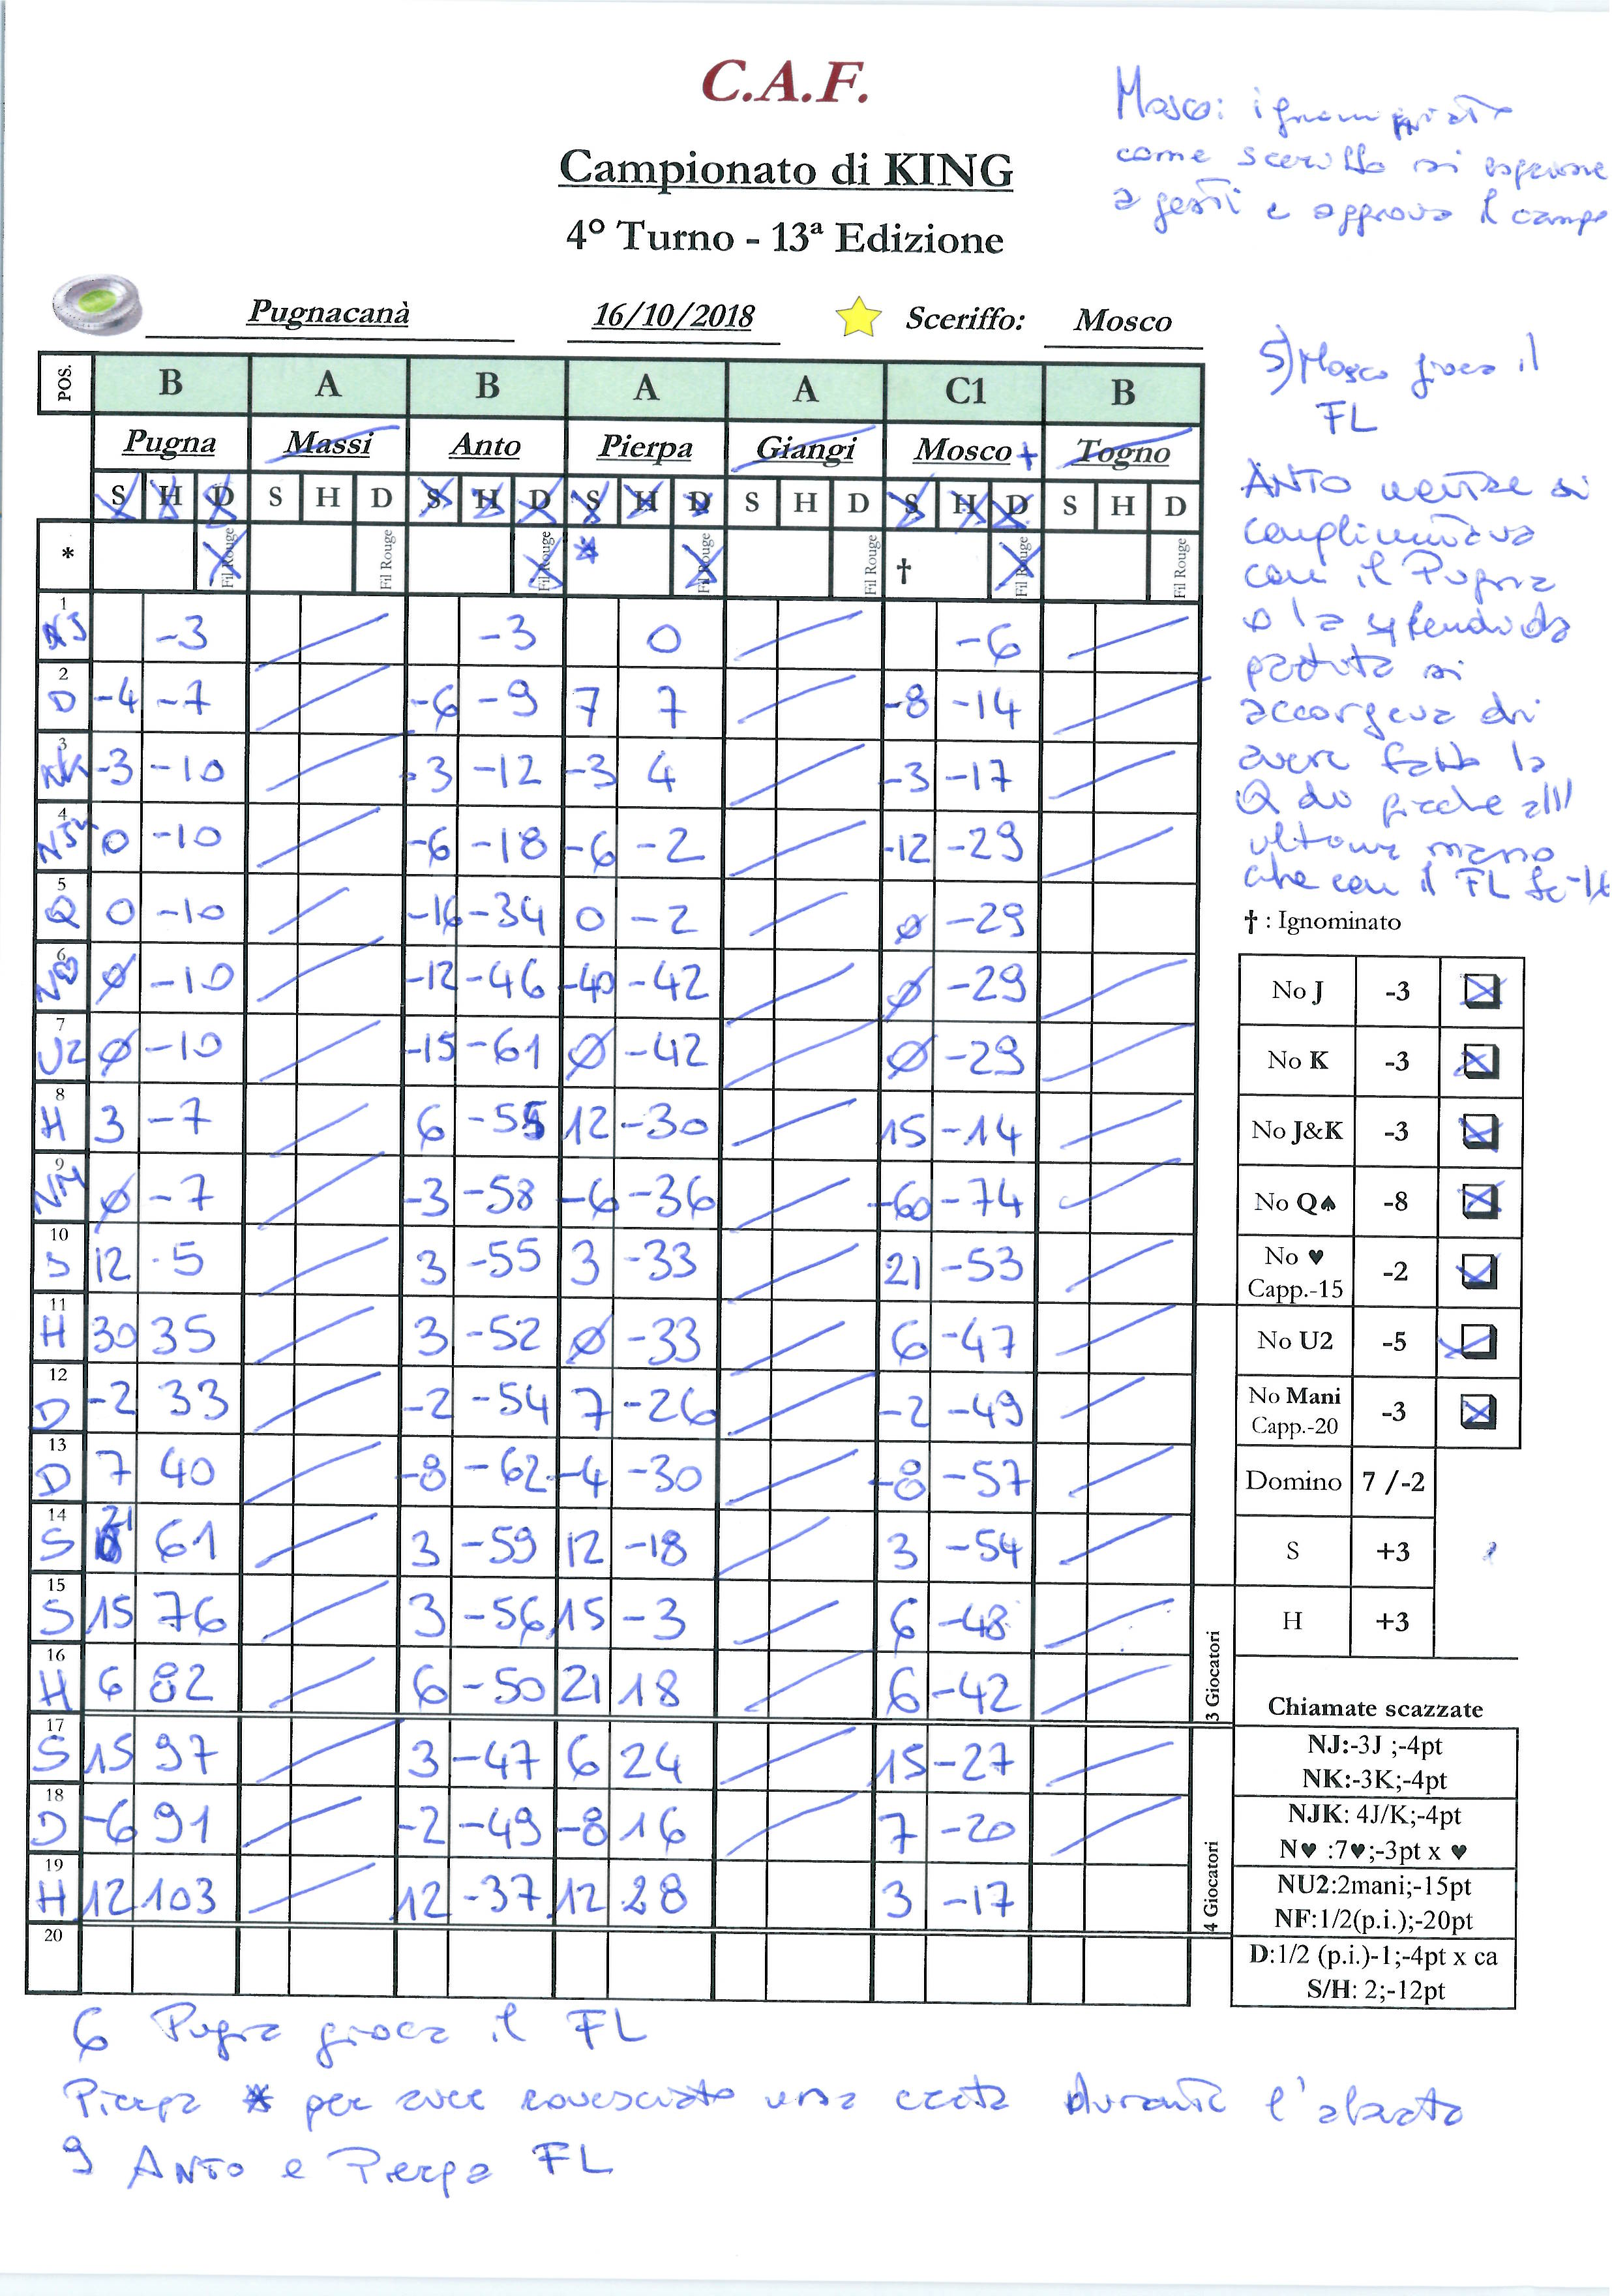 C.A.F.
Campionato di KING
4° Turno - 13ª Edizione
Mosco:
come si
a gesti e approva il campo
Pugnacanà 16/10/2018 Sceriffo: Mosco
POS. B A B A A C1 B
Pugna Massi Anto Pierpa Giangi Mosco † Togno
S H D S H D S H D S H D S H D S H D S H D
* Fil Rouge Fil Rouge Fil Rouge * Fil Rouge Fil Rouge † Fil Rouge Fil Rouge
1 NJ -3 -3 0 -6
2 D -4 -7 -6 -9 7 7 -8 -14
3 NK -3 -10 -3 -12 -3 4 -3 -17
4 0 -10 -6 -18 -6 -2 -12 -29
5 Q 0 -10 -16 -34 0 -2 0 -29
6 N♥ 0 -10 -12 -46 -40 -42 0 -29
7 U2 0 -10 -15 -61 0 -42 0 -29
8 H 3 -7 6 -55 12 -30 15 -14
9 NM 0 -7 -3 -58 -6 -36 -60 -74
10 S 12 5 3 -55 3 -33 21 -53
11 H 30 35 3 -52 0 -33 6 -47
12 D -2 33 -2 -54 7 -26 -2 -49
13 D 7 40 -8 -62 -4 -30 -8 -57
14 S 21 61 3 -59 12 -18 3 -54
15 S 15 76 3 -56 15 -3 6 -48
16 H 6 82 6 -50 21 18 6 -42
17 S 15 97 3 -47 6 24 15 -27
18 D -6 91 -2 -49 -8 16 7 -20
19 H 12 103 12 -37 12 28 3 -17
20
3 Giocatori
4 Giocatori
5) Mosco gioca il
FL
ANTO mentre si
complimentava
con il Pugna
la splendida
partita si
accorgeva di
avere fatto la
Q di picche all'
ultima mano
che con il FL fa -16
† : Ignominato
No J -3
No K -3
No J&K -3
No Q♠ -8
No ♥ -2
Capp.-15
No U2 -5
No Mani -3
Capp.-20
Domino 7 /-2
S +3
H +3
Chiamate scazzate
NJ:-3J ;-4pt
NK:-3K;-4pt
NJK: 4J/K;-4pt
N♥ :7♥;-3pt x ♥
NU2:2mani;-15pt
NF:1/2(p.i.);-20pt
D:1/2 (p.i.)-1;-4pt x ca
S/H: 2;-12pt
6 Pugna gioca il FL
Pierpa * per aver rovesciato una carta durante l'alzata
9 ANTO e Pierpa FL